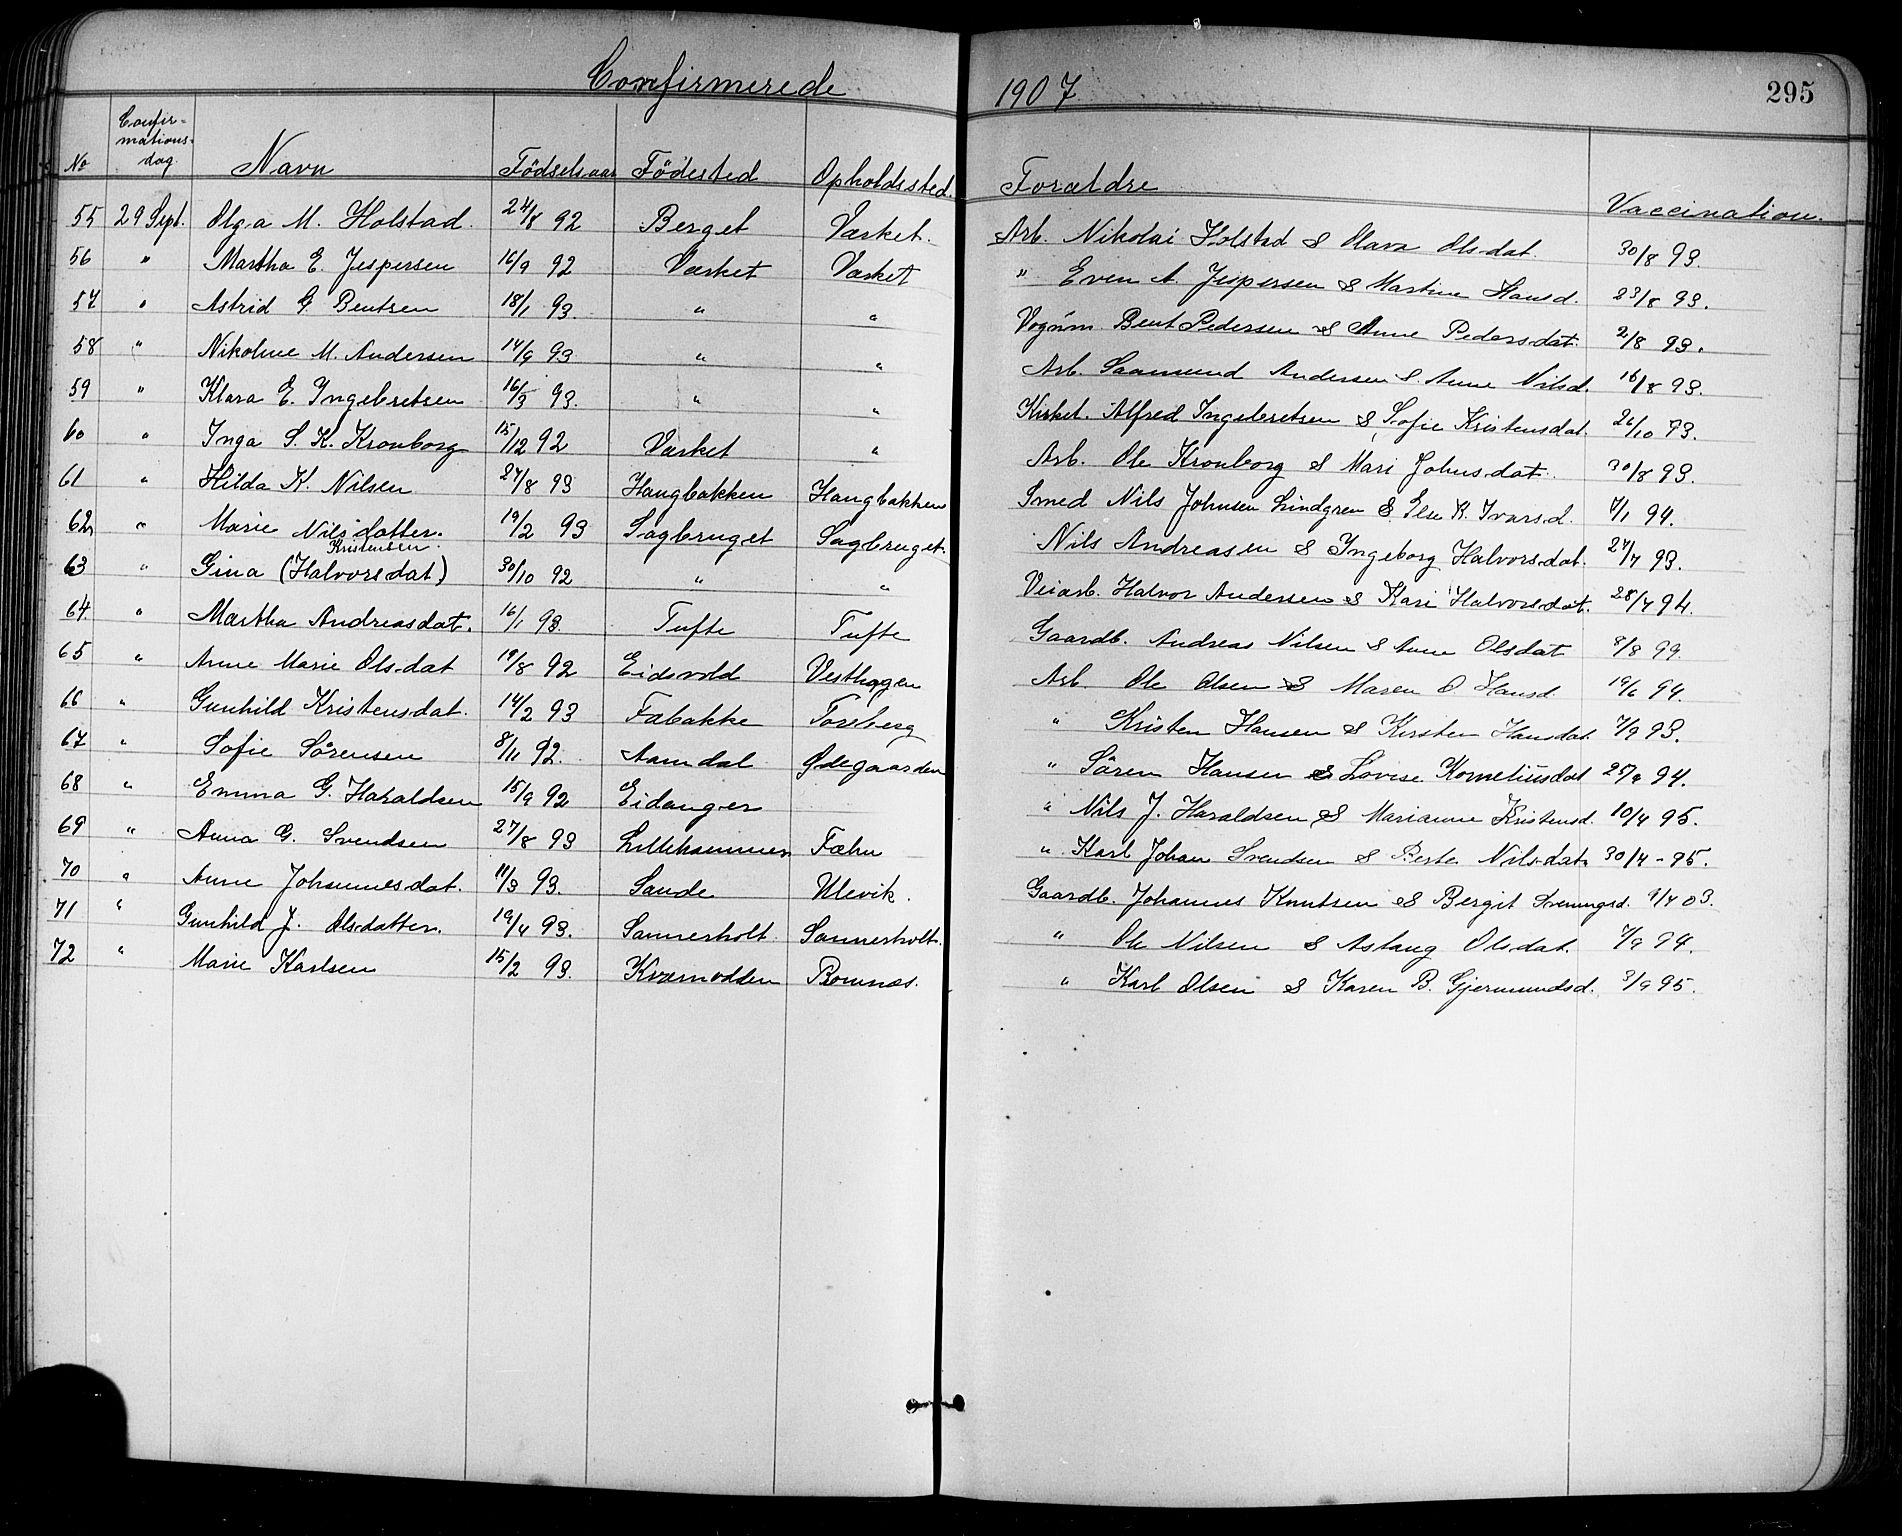 Confirmerede 1907 295
No Confirmationsdag. Navn Födselsaar Födested Opholdssted. Forældre Vaccination.
55 29 Sept. Olga M. Holstad. 24/8 92 Berget Værket. Arb. Nikolai Holstad & Olava Olsdat. 30/8 93.
56 " Martha E. Jespersen 16/9 92 Værket Værket " Even A. Jespersen & Martine Hansd. 23/8 93.
57 " Astrid G. Bentsen 18/1 93. " " Vognm. Bent Pedersen & Anne Pedersdat. 2/8 93.
58 " Nikoline M. Andersen 14/9 93 " " Arb. Saamund Andersen & Anne Nilsd. 16/8 93.
59 " Klara E. Ingebretsen 16/3 93. " " Kirket. Alfred Ingebretsen & Sofie Kristensdat. 26/10 93.
60 " Inga S. K. Kronborg 15/12 92 Værket " Arb. Ole Kronborg & Mari Johnsdat. 30/8 93.
61 " Hilda K. Nilsen 27/8 93 Haugbakken Haugbakken Smed Nils Johnsen Lindgren & Else K. Ivarsd. 7/1 94.
62 " Marie Nilsdatter. 19/2 93 Sagbruget Sagbruget. Nils Andreasen & Ingeborg Halvorsdat. 27/7 93.
Kristensen.
63 " Gina (Halvorsdat) 30/10 92 " " Veiarb. Halvor Andersen & Kari Halvorsdat. 28/7 94.
64. " Martha Andreasdat. 16/1 93. Tufte Tufte Gaardb. Andreas Nilsen & Anne Olsdat 8/8 99.
65 " Anne Marie Olsdat 19/8 92 Eidsvold Vesthagen Arb. Ole Olsen & Maren O Hansd 19/6 94.
66 " Gunhild Kristensdat. 14/2 93 Fabakke Toreberg " Kristen Hansen & Kirsten Hansdat 7/9 93.
67 " Sofie Sörensen 8/11 92. Aamdal Ødegaarden " Sören Hansen & Lovise Korneliusdat 25/9 94.
68 " Emma G. Haraldsen 15/9 92 Eidanger " Nils J. Haraldsen & Marianne Kristensd. 10/4 95.
69 " Anna G. Svendsen 27/8 93 Lillehammer Fæhn " Karl Johan Svendsen & Berte Nilsdat. 30/4 - 95.
70 " Anne Johannesdat. 11/3 93. Sande Ulevik. Gaardb. Johannes Knutsen & Bergit Sveningsd. 9/4 03.
71 " Gunhild J. Olsdatter. 19/4 93. Sannerholt. Sannerholt. " Ole Nilsen & Aslaug Olsdat. 7/9 94.
72 " Marie Karlsen 15/2 93. Kværnodden Bomnæs. " Karl Olsen & Karen B. Gjermundsd. 3/9 95.